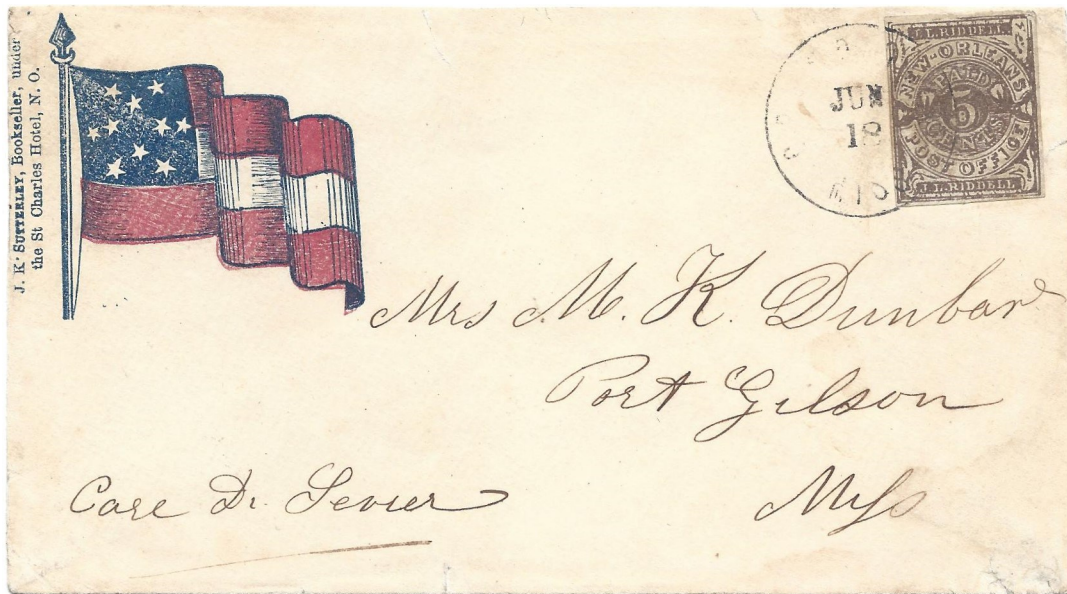 J. K. SUTTERLEY, Bookseller, under
the St Charles Hotel, N. O.
JUN
18
MIC
J. L. RIDDELL.
NEW-ORLEANS
PAID
5
CENTS
POST OFFICE
J. L. RIDDELL
Mrs M. K. Dunbar
Port Gilson
Care Dr. Sevier
Myss